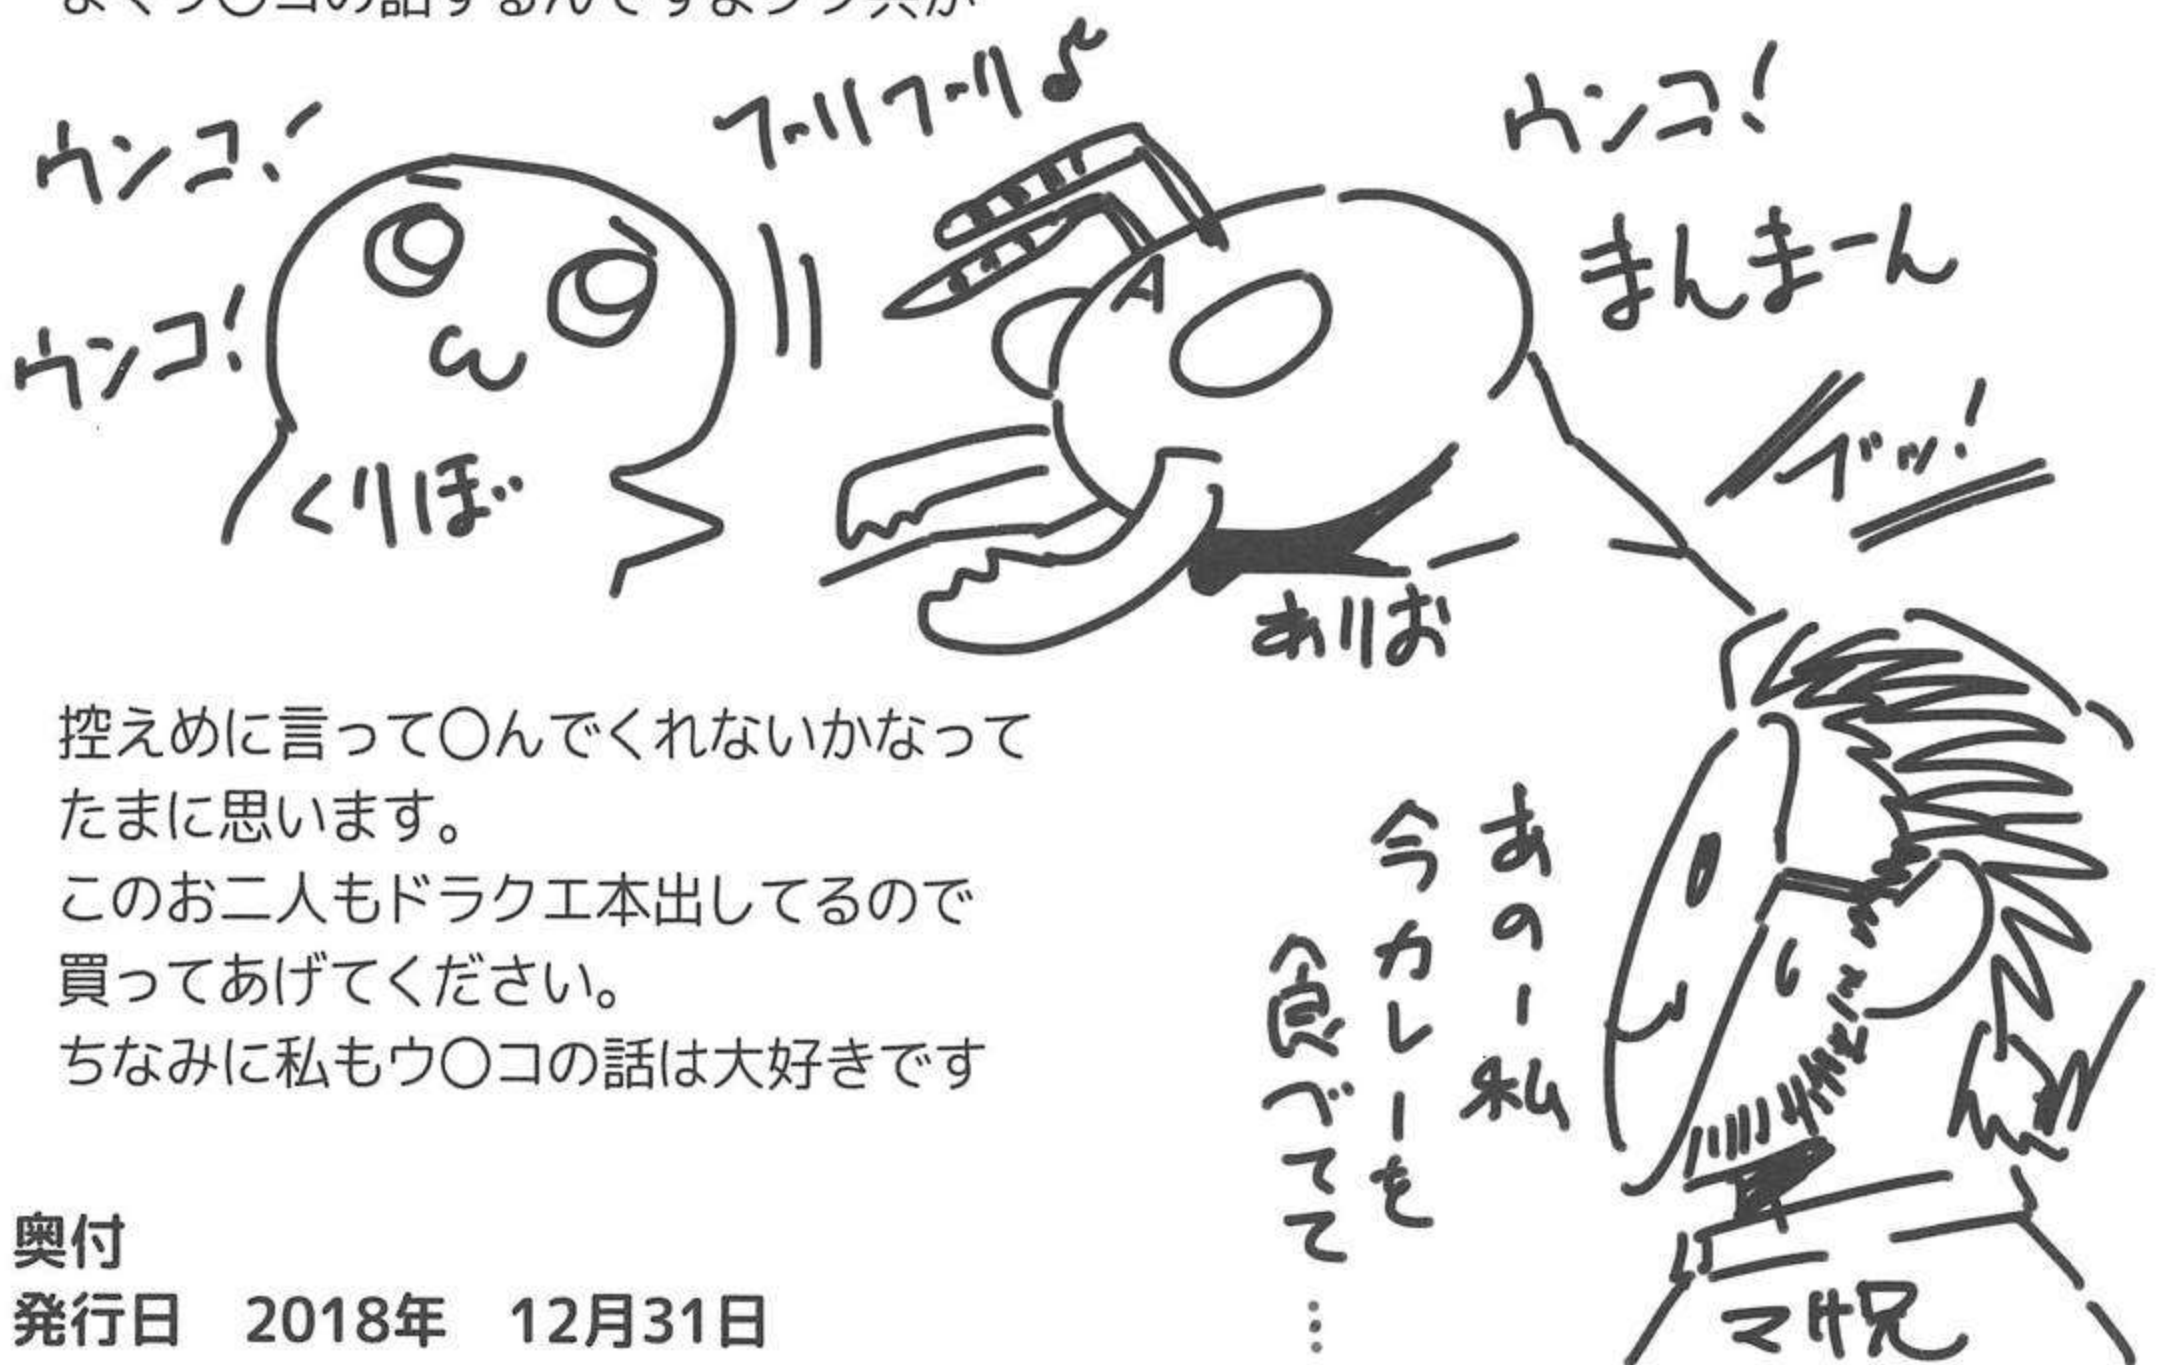 よくウ〇コの話するんですよアラ兵が
ウンコ!
ウンコ!
くりぼ
フーリフーリ♪
ウンコ!
まんまーん
ブッ!
ありお
控えめに言って〇んでくれないかなって
たまに思います。
このお二人もドラクエ本出してるので
買ってあげてください。
ちなみに私もウ〇コの話は大好きです
あのー私
今カレーを
食べてて…
マサ兄
奥付
発行日 2018年 12月31日